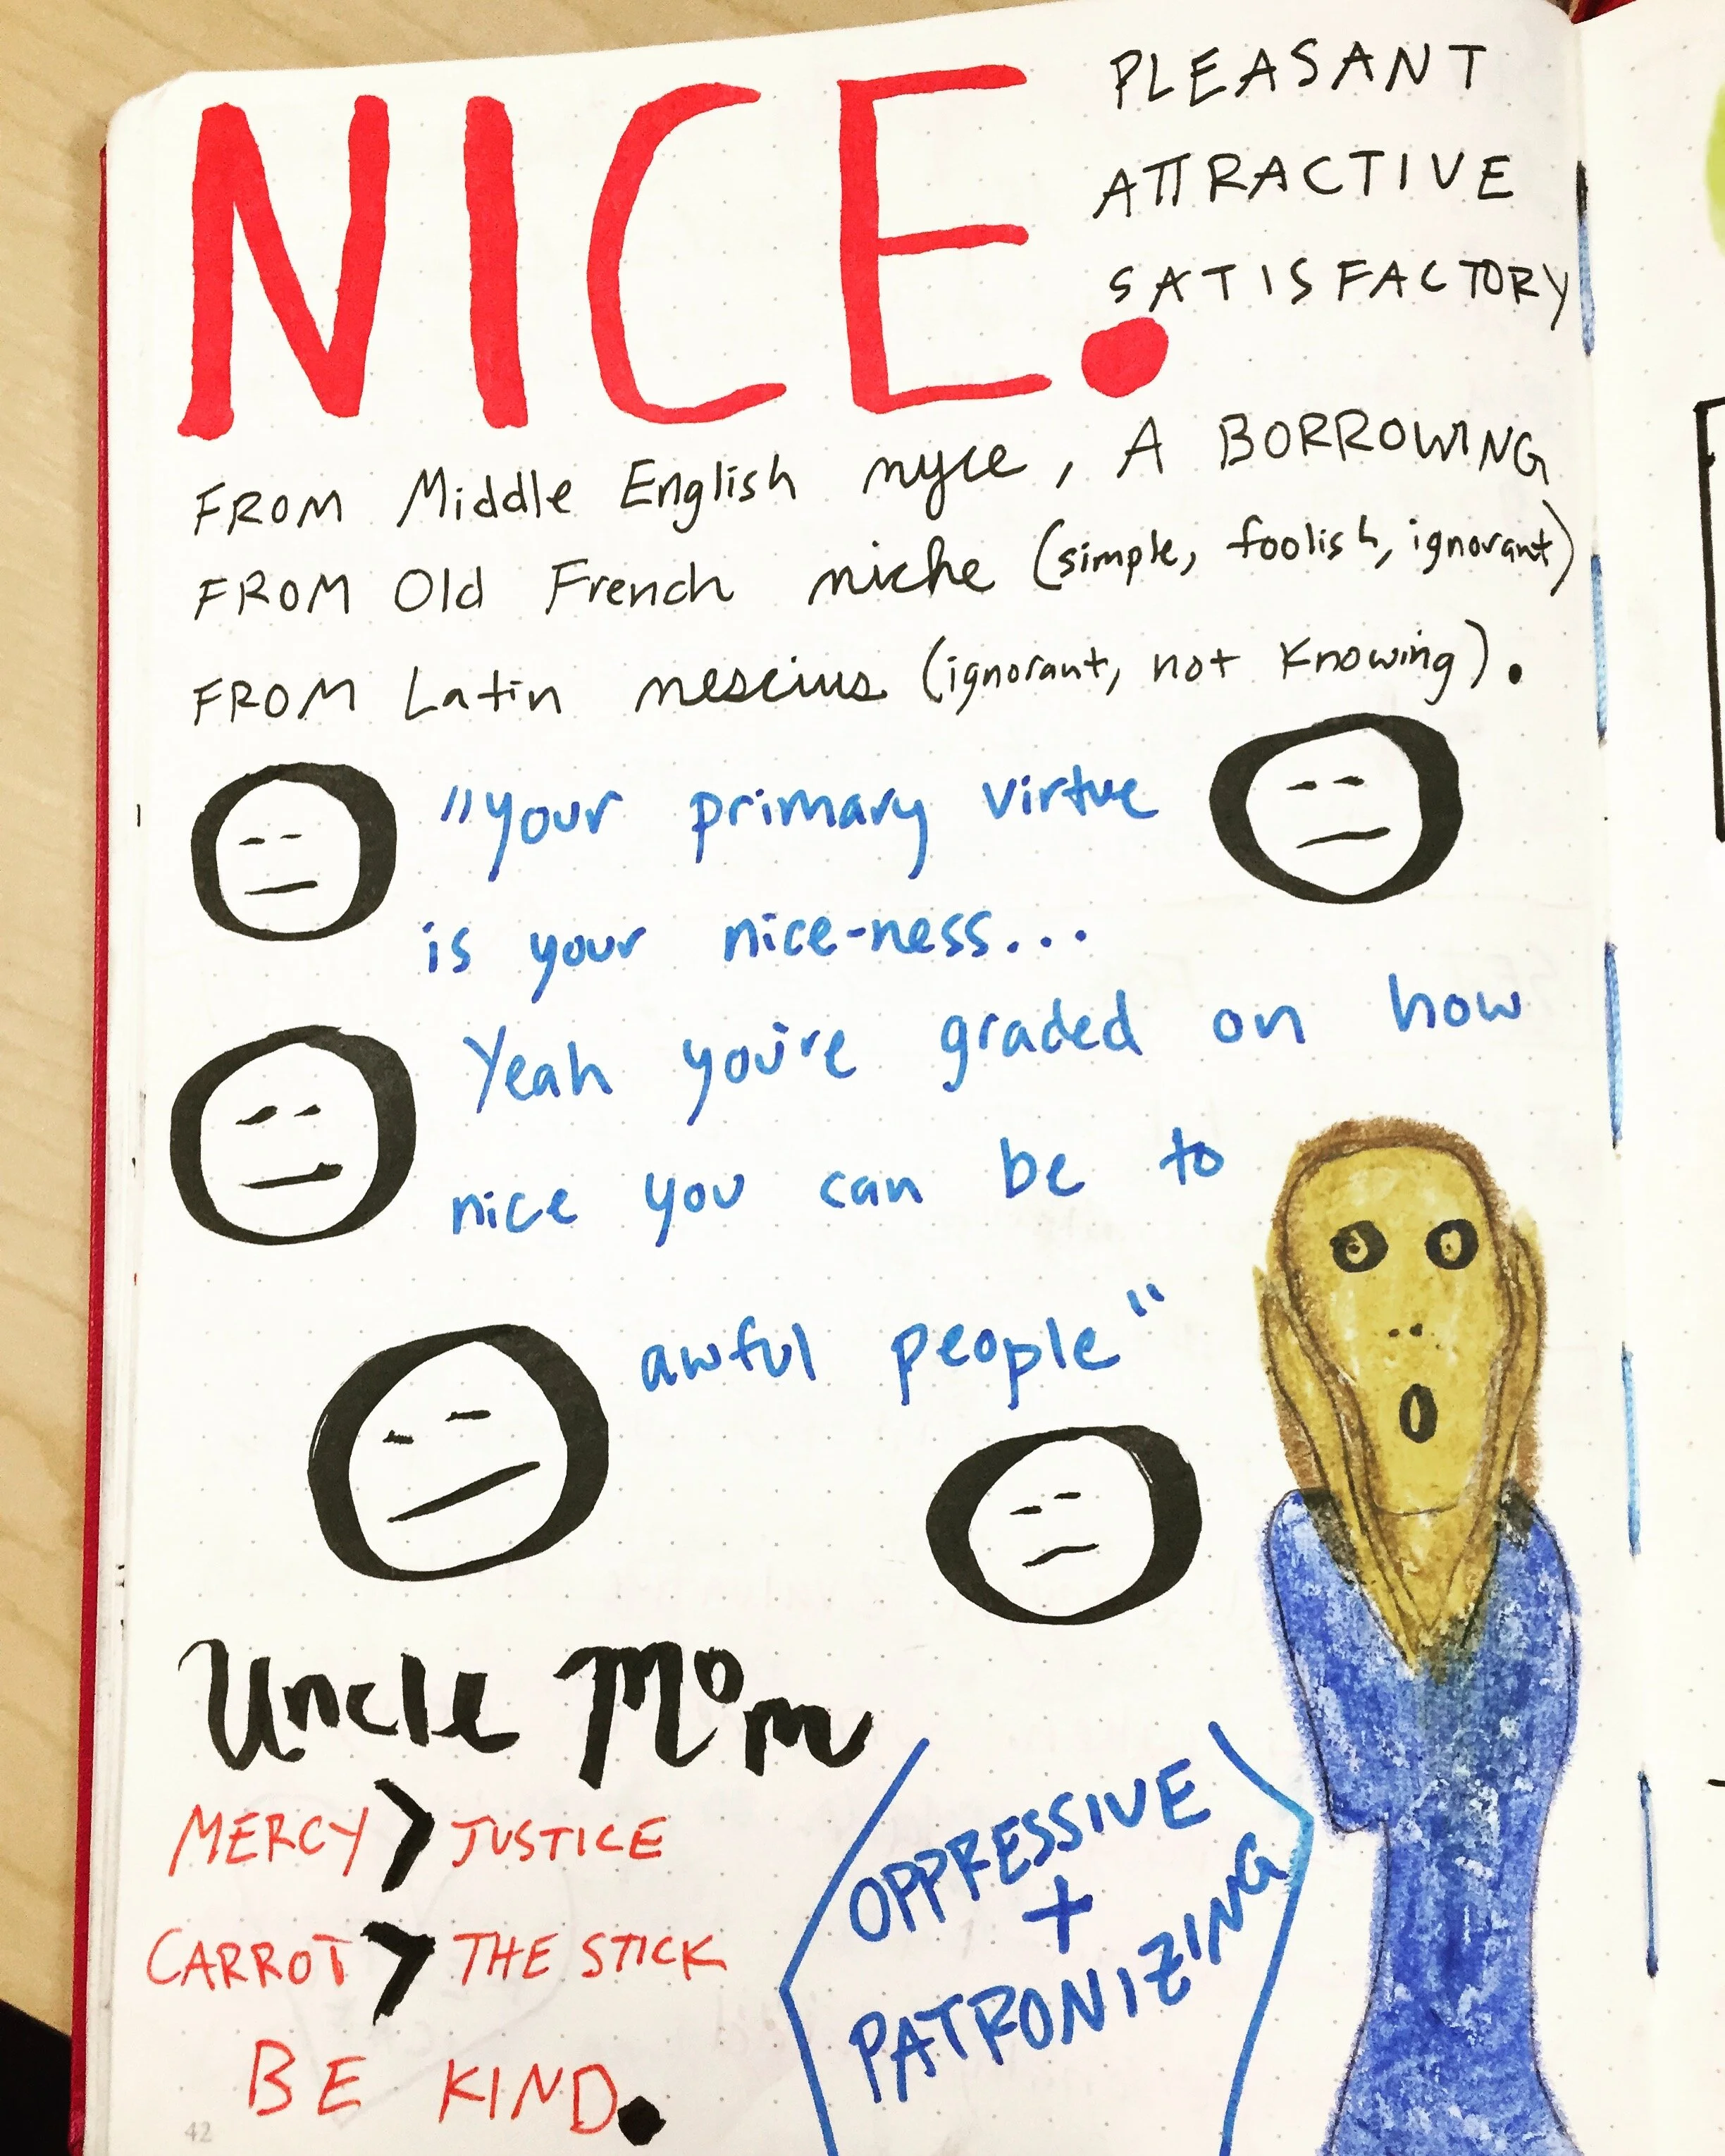 NICE.
PLEASANT
ATTRACTIVE
SATISFACTORY
FROM Middle English nyce, A BORROWING
FROM Old French niche (simple, foolish, ignorant)
FROM Latin nescius (ignorant, not knowing).
"your primary virtue
is your nice-ness...
Yeah you're graded on how
nice you can be to
awful people"
Uncle Mom
MERCY > JUSTICE
CARROT > THE STICK
BE KIND.
OPPRESSIVE
+
PATRONIZING
42